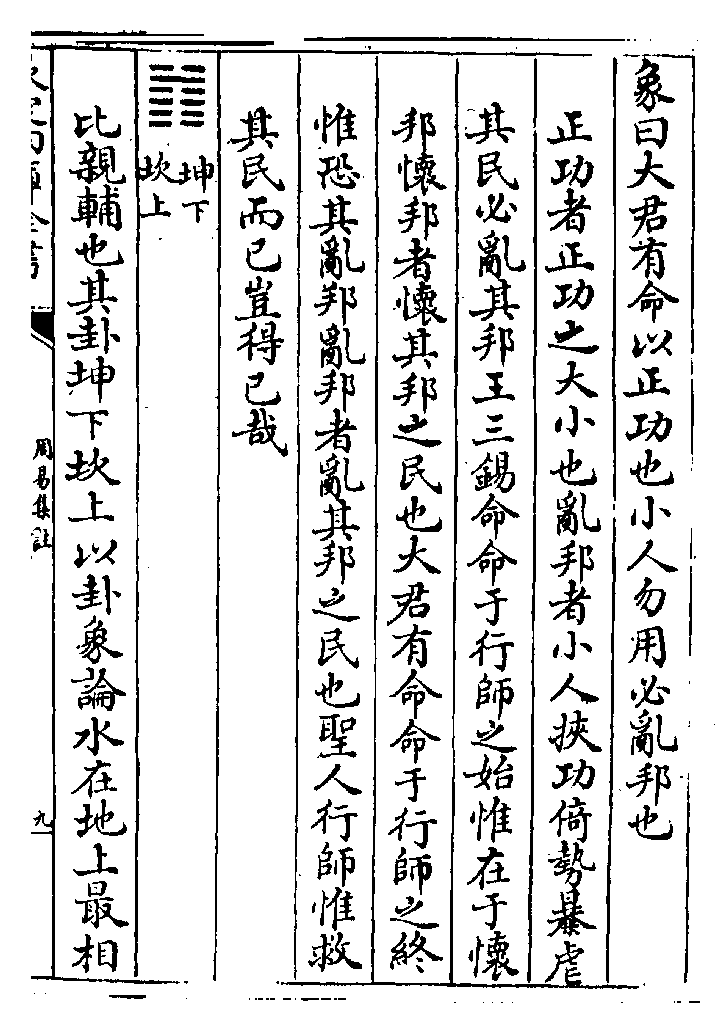 象曰大君有命以正功也小人勿用必亂邦也
正功者正功之大小也亂邦者小人挾功倚勢暴虐
其民必亂其邦王三錫命命于行師之始惟在于懷
邦懷邦者懷其邦之民也大君有命命于行師之終
惟恐其亂邦亂邦者亂其邦之民也聖人行師惟救
其民而已豈得已哉
坤下
坎上
比親輔也其卦坤下坎上以卦象論水在地上最相
周易集註
九